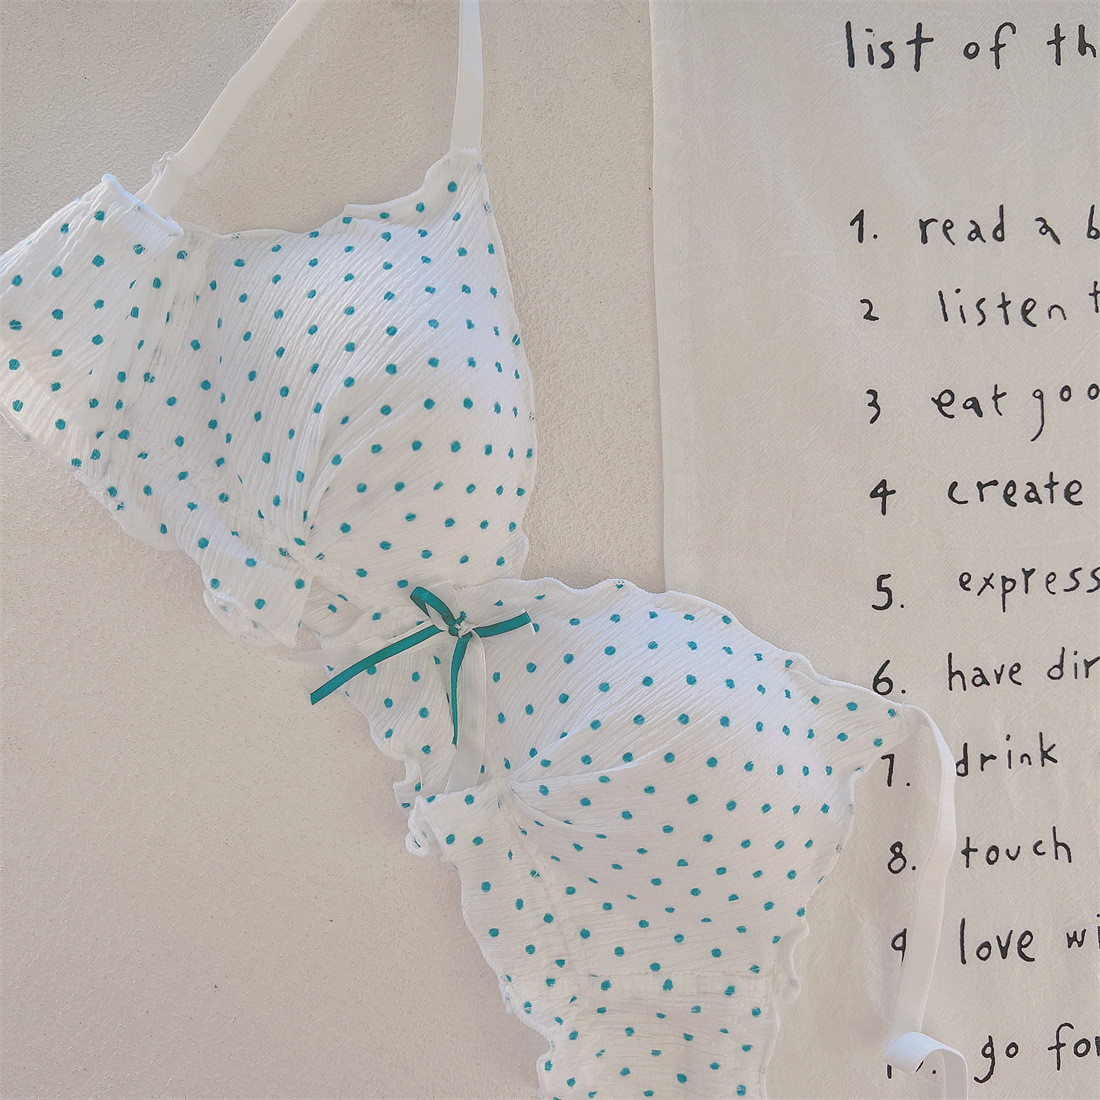 list of th
1. read a b
2 listen t
3 eat goo
4 create
5. express
6. have dir
7. drink
8. touch
9 love wi
go for